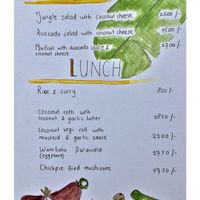 Jungle salad with coconut cheese 2500/-
Avocado salad with coconut cheese 1500/-
Meatout with avocado sauce & 2700/-
coconut cheese
LUNCH
Rice & curry 850/-
Coconut rotti with
coconut & garlic butter 1850/-
Coconut vegi roll with
mustard & garlic sauce 2300/-
Wambatu Parawala 1950/-
(eggplant)
Chickpie fried mushrooms 2350/-